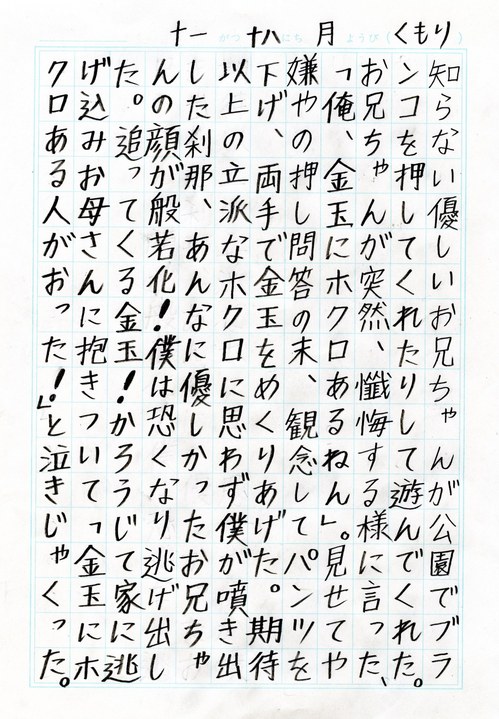 十一がつ十八にち月ようび(くもり)
知らない優しいお兄ちゃんが公園でブラ
ンコを押してくれたりして遊んでくれた。
お兄ちゃんが突然、懺悔する様に言った、
「俺、金玉にホクロあるねん」。見せてや
嫌やの押し問答の末、観念してパンツを
下げ、両手で金玉をめくりあげた。期待
以上の立派なホクロに思わず僕が噴き出
した刹那、あんなに優しかったお兄ちゃ
んの顔が般若化!僕は恐くなり逃げ出し
た。追ってくる金玉!かろうじて家に逃
げ込みお母さんに抱きついて「金玉にホ
クロある人がおった!」と泣きじゃくった。